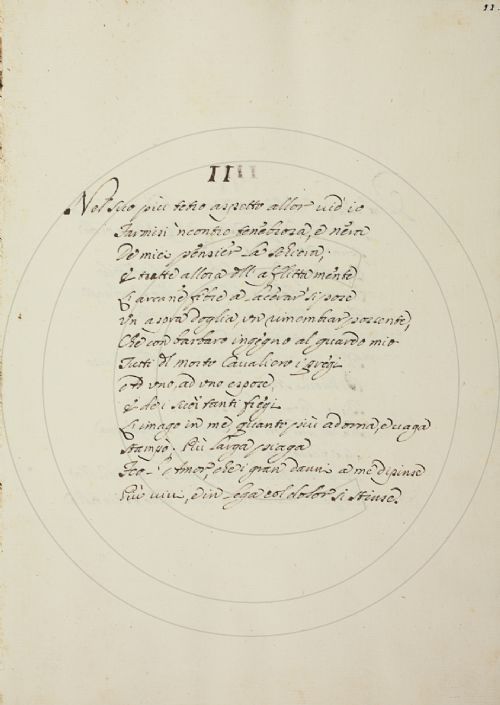 11
II
Nel suo più tetro aspetto allor vid io
Farmisi incontro tenebrosa, e nera
De miei pensier la schiera;
E tratte allora dall' afflitta mente
Le arcane fibre a lacerar si pose
Un aspra doglia, un rimembrar possente,
Che con barbaro ingegno al guardo mio
Tutti del morto Cavaliere i pregi
ad uno, ad uno espose,
E de i suoi tanti fregi
L'imago in me quanto più adorna, e vaga
Stampò; Più larga piaga
Amor, che i gran danni a me dipinse
Più vivi, e in lega col dolor si strinse.